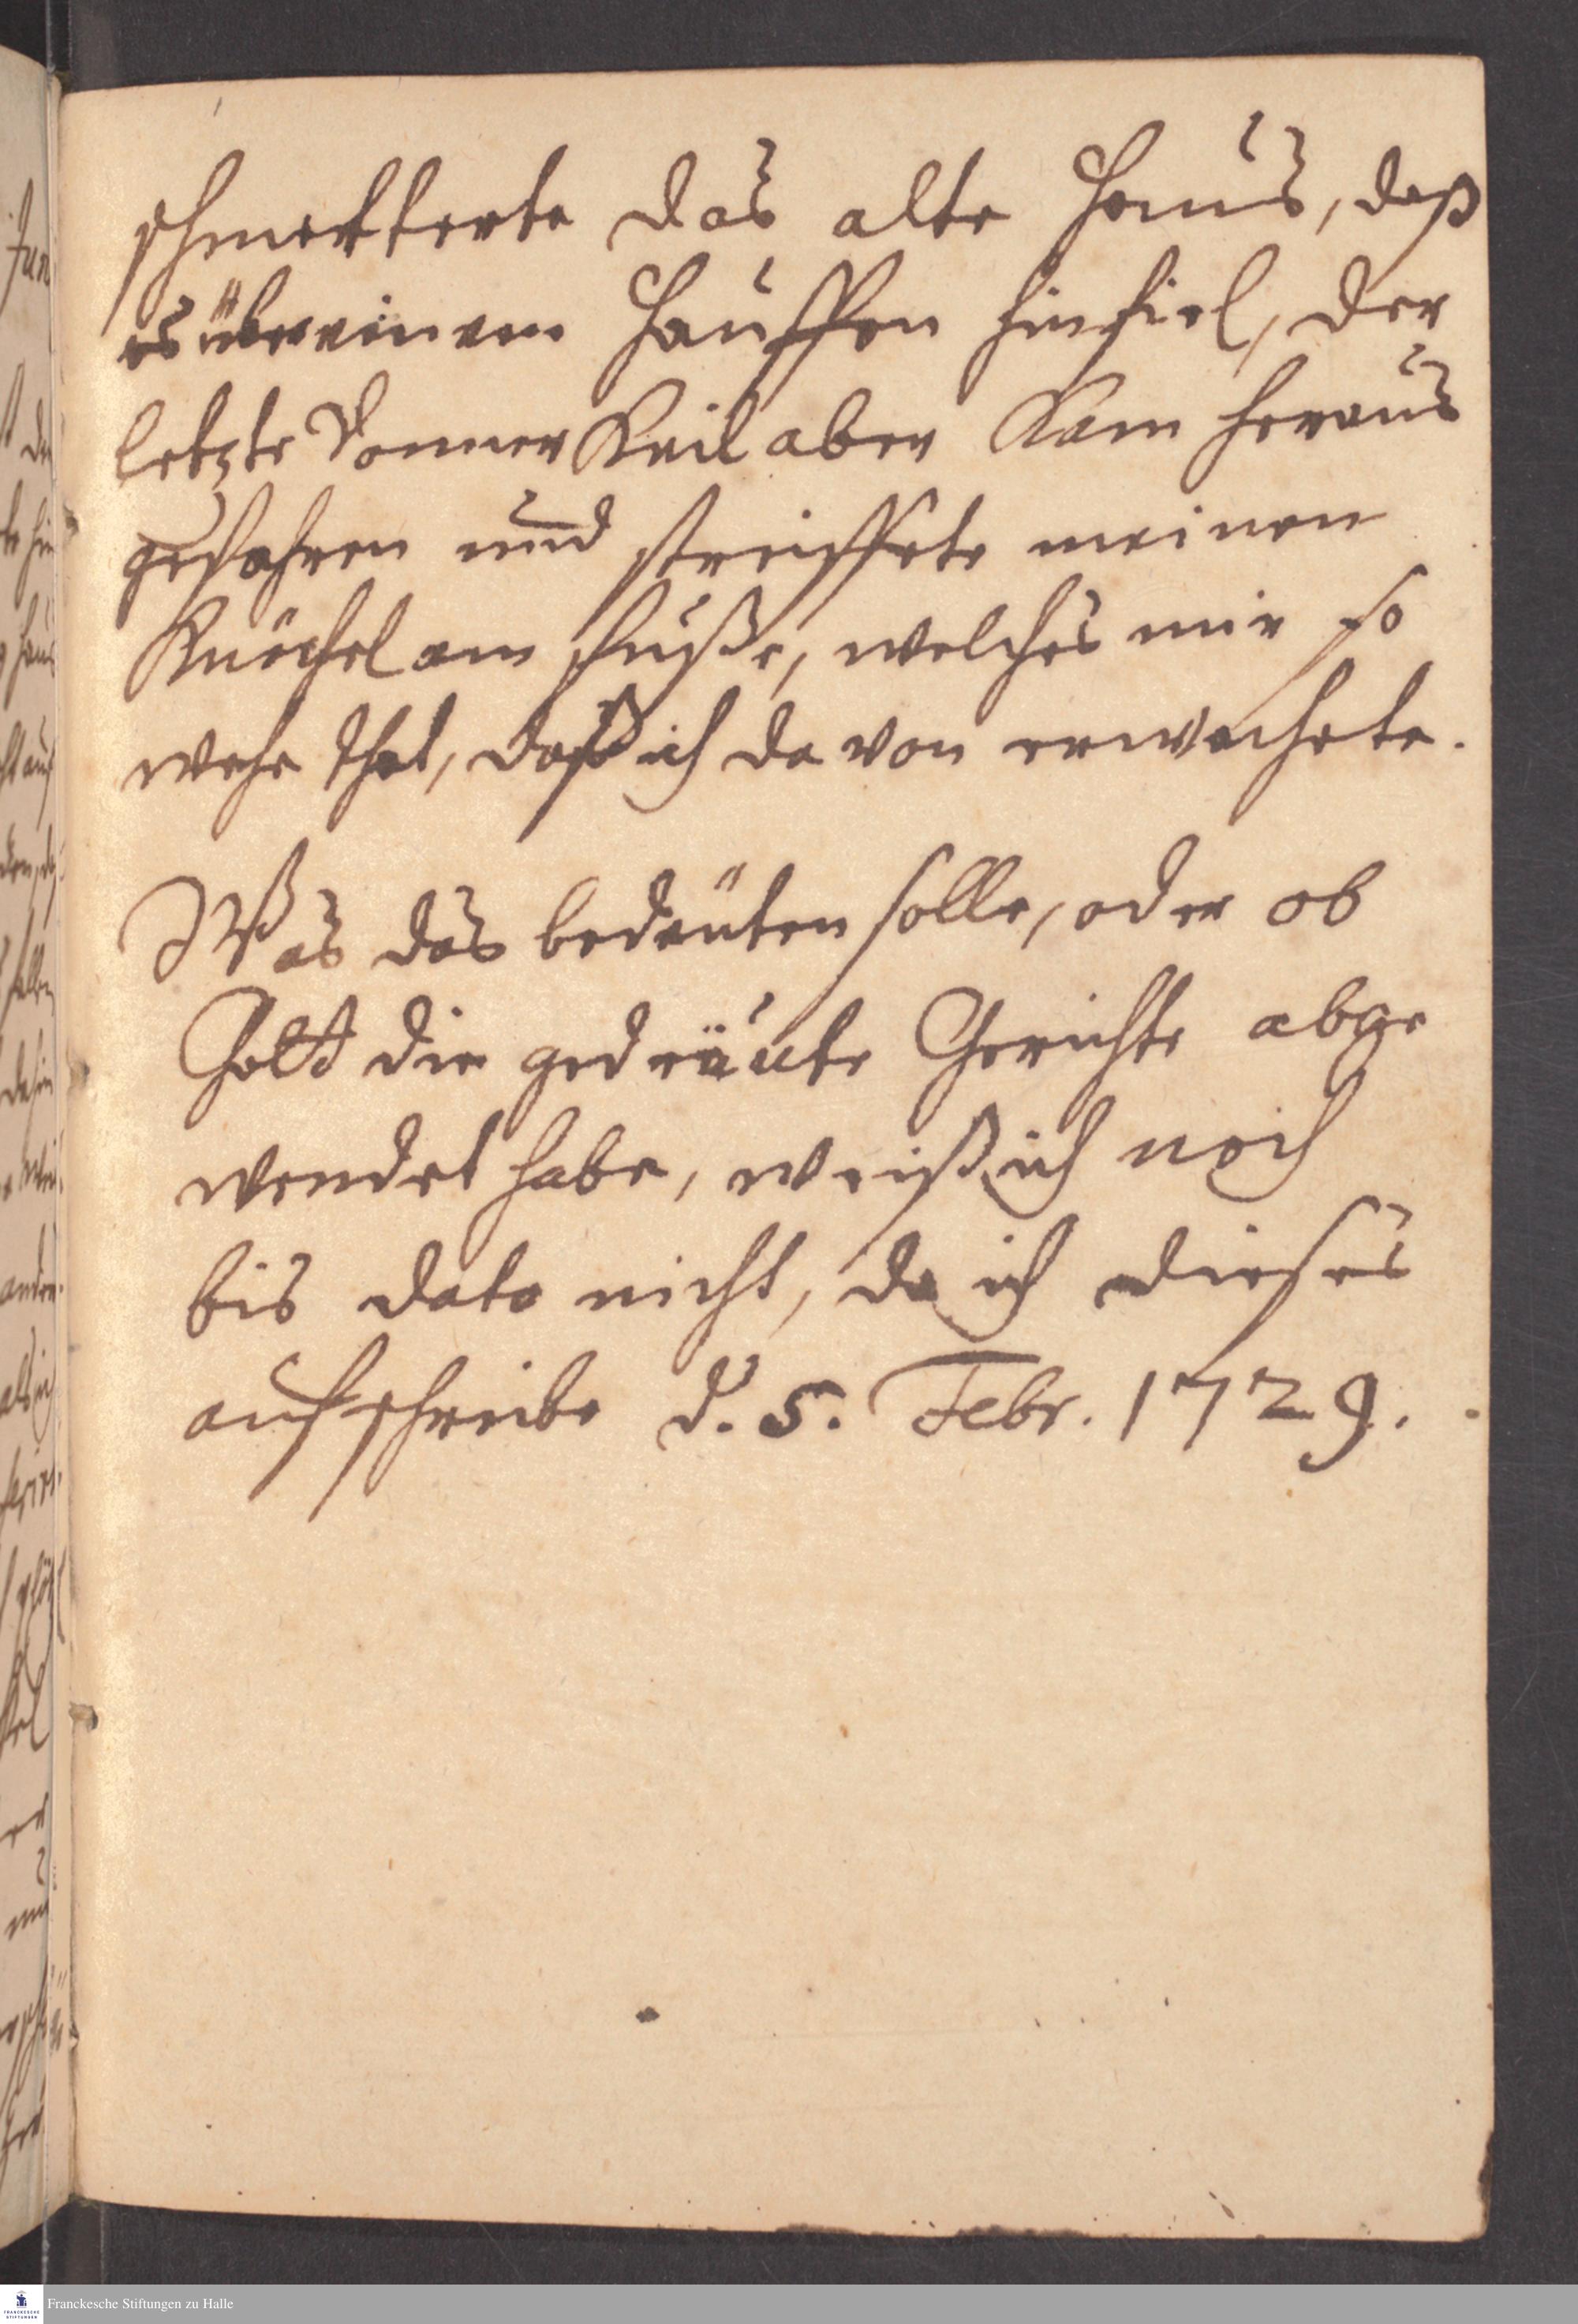 schmetterte das alte Hauß, daß
es über einen Hauffen hinfiel, der
letzte Donner Keil aber Kam heraus
gefahren und streiffete meinen
Knöchel am Fuße, welches mir so
wehe that, daß ich da von erwachete.
Was das bedeuten solle, oder ob
Gott die gedräute Gerichte abge
wendet habe, weiß ich noch
bis dato nicht, da ich dieses
aufschreibe d. 5. Febr. 1729.
Franckesche Stiftungen zu Halle